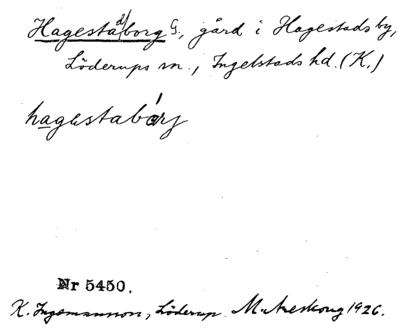 Hagesta d/ borg G, gård i Hagestads by,
Löderups sn., Ingelstads hd. (K.)
hagestabórj
Nr 5450.
K. Ingemansson, Löderup. M. Areskoug 1926.